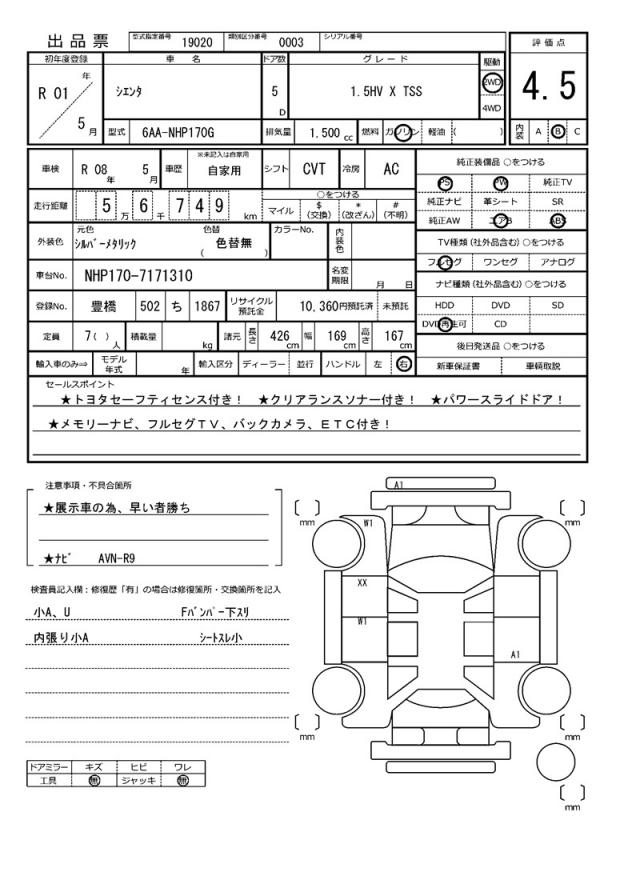 出品票 型式指定番号 19020 類別区分番号 0003 シリアル番号
評価点
4.5
内装 A B C
初年度登録 車名 ドア数 グレード 駆動
R 01 年 5 月 シエンタ 5 D 1.5HV X TSS 2WD 4WD
型式 6AA-NHP170G 排気量 1.500 cc 燃料 ガソリン 軽油 ( )
車検 R 08 年 5 月 車歴 ※未記入は自家用 自家用 シフト CVT 冷房 AC
走行距離 5 万 6 千 7 4 9 km
○をつける
マイル $(交換) *(改ざん) #(不明)
外装色 元色 シルバーメタリック 色替 ( 色替無 ) カラーNo. 内装色
車台No. NHP170-7171310 名変期限 月 日
登録No. 豊橋 502 ち 1867 リサイクル預託金 10,360円預託済 未預託
定員 7( ) 人 積載量 kg 諸元 長さ 426 cm 幅 169 cm 高さ 167 cm
輸入車のみ⇒ モデル年式 年 輸入区分 ディーラー 並行 ハンドル 左 右
純正装備品 ○をつける
PS PW 純正TV
純正ナビ 革シート SR
純正AW エアB ABS
TV種類(社外品含む) ○をつける
フルセグ ワンセグ アナログ
ナビ種類(社外品含む) ○をつける
HDD DVD SD
DVD再生可 CD
後日発送品 ○をつける
新車保証書 車輌取説
セールスポイント
★トヨタセーフティセンス付き! ★クリアランスソナー付き! ★パワースライドドア!
★メモリーナビ、フルセグTV、バックカメラ、ETC付き!
注意事項・不具合箇所
★展示車の為、早い者勝ち
★ナビ AVN-R9
検査員記入欄:修復歴「有」の場合は修復箇所・交換箇所を記入
小A、U Fバンパー下スリ
内張り小A シートスレ小
ドアミラー キズ ヒビ ワレ
工具 無 ジャッキ 無
A1
W1
XX
W1
A1
[ ] mm
[ ] mm
[ ] mm
[ ] mm
[ ] mm